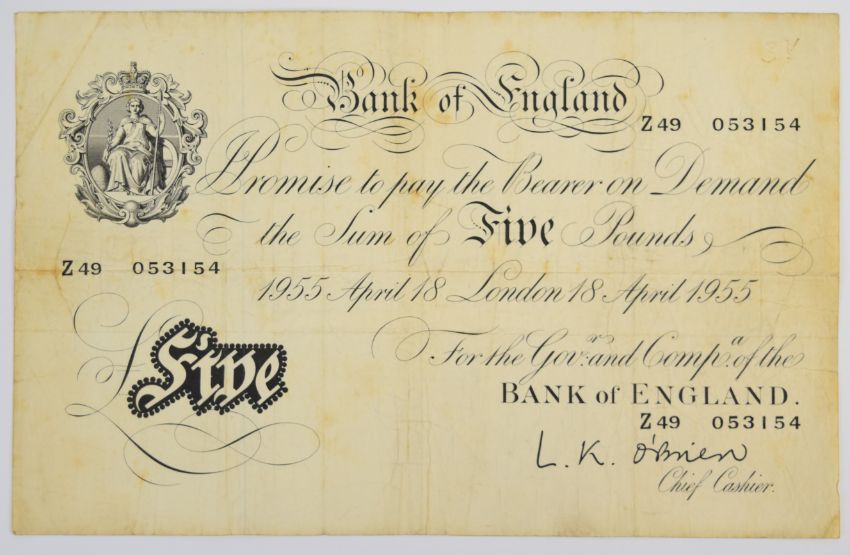 Bank of England
Z49 053154
I Promise to pay the Bearer on Demand
the Sum of Five Pounds
Z49 053154
1955 April 18 London 18 April 1955
£ Five
For the Govr. and Compa. of the
BANK of ENGLAND.
Z49 053154
L. K. O'Brien
Chief Cashier.